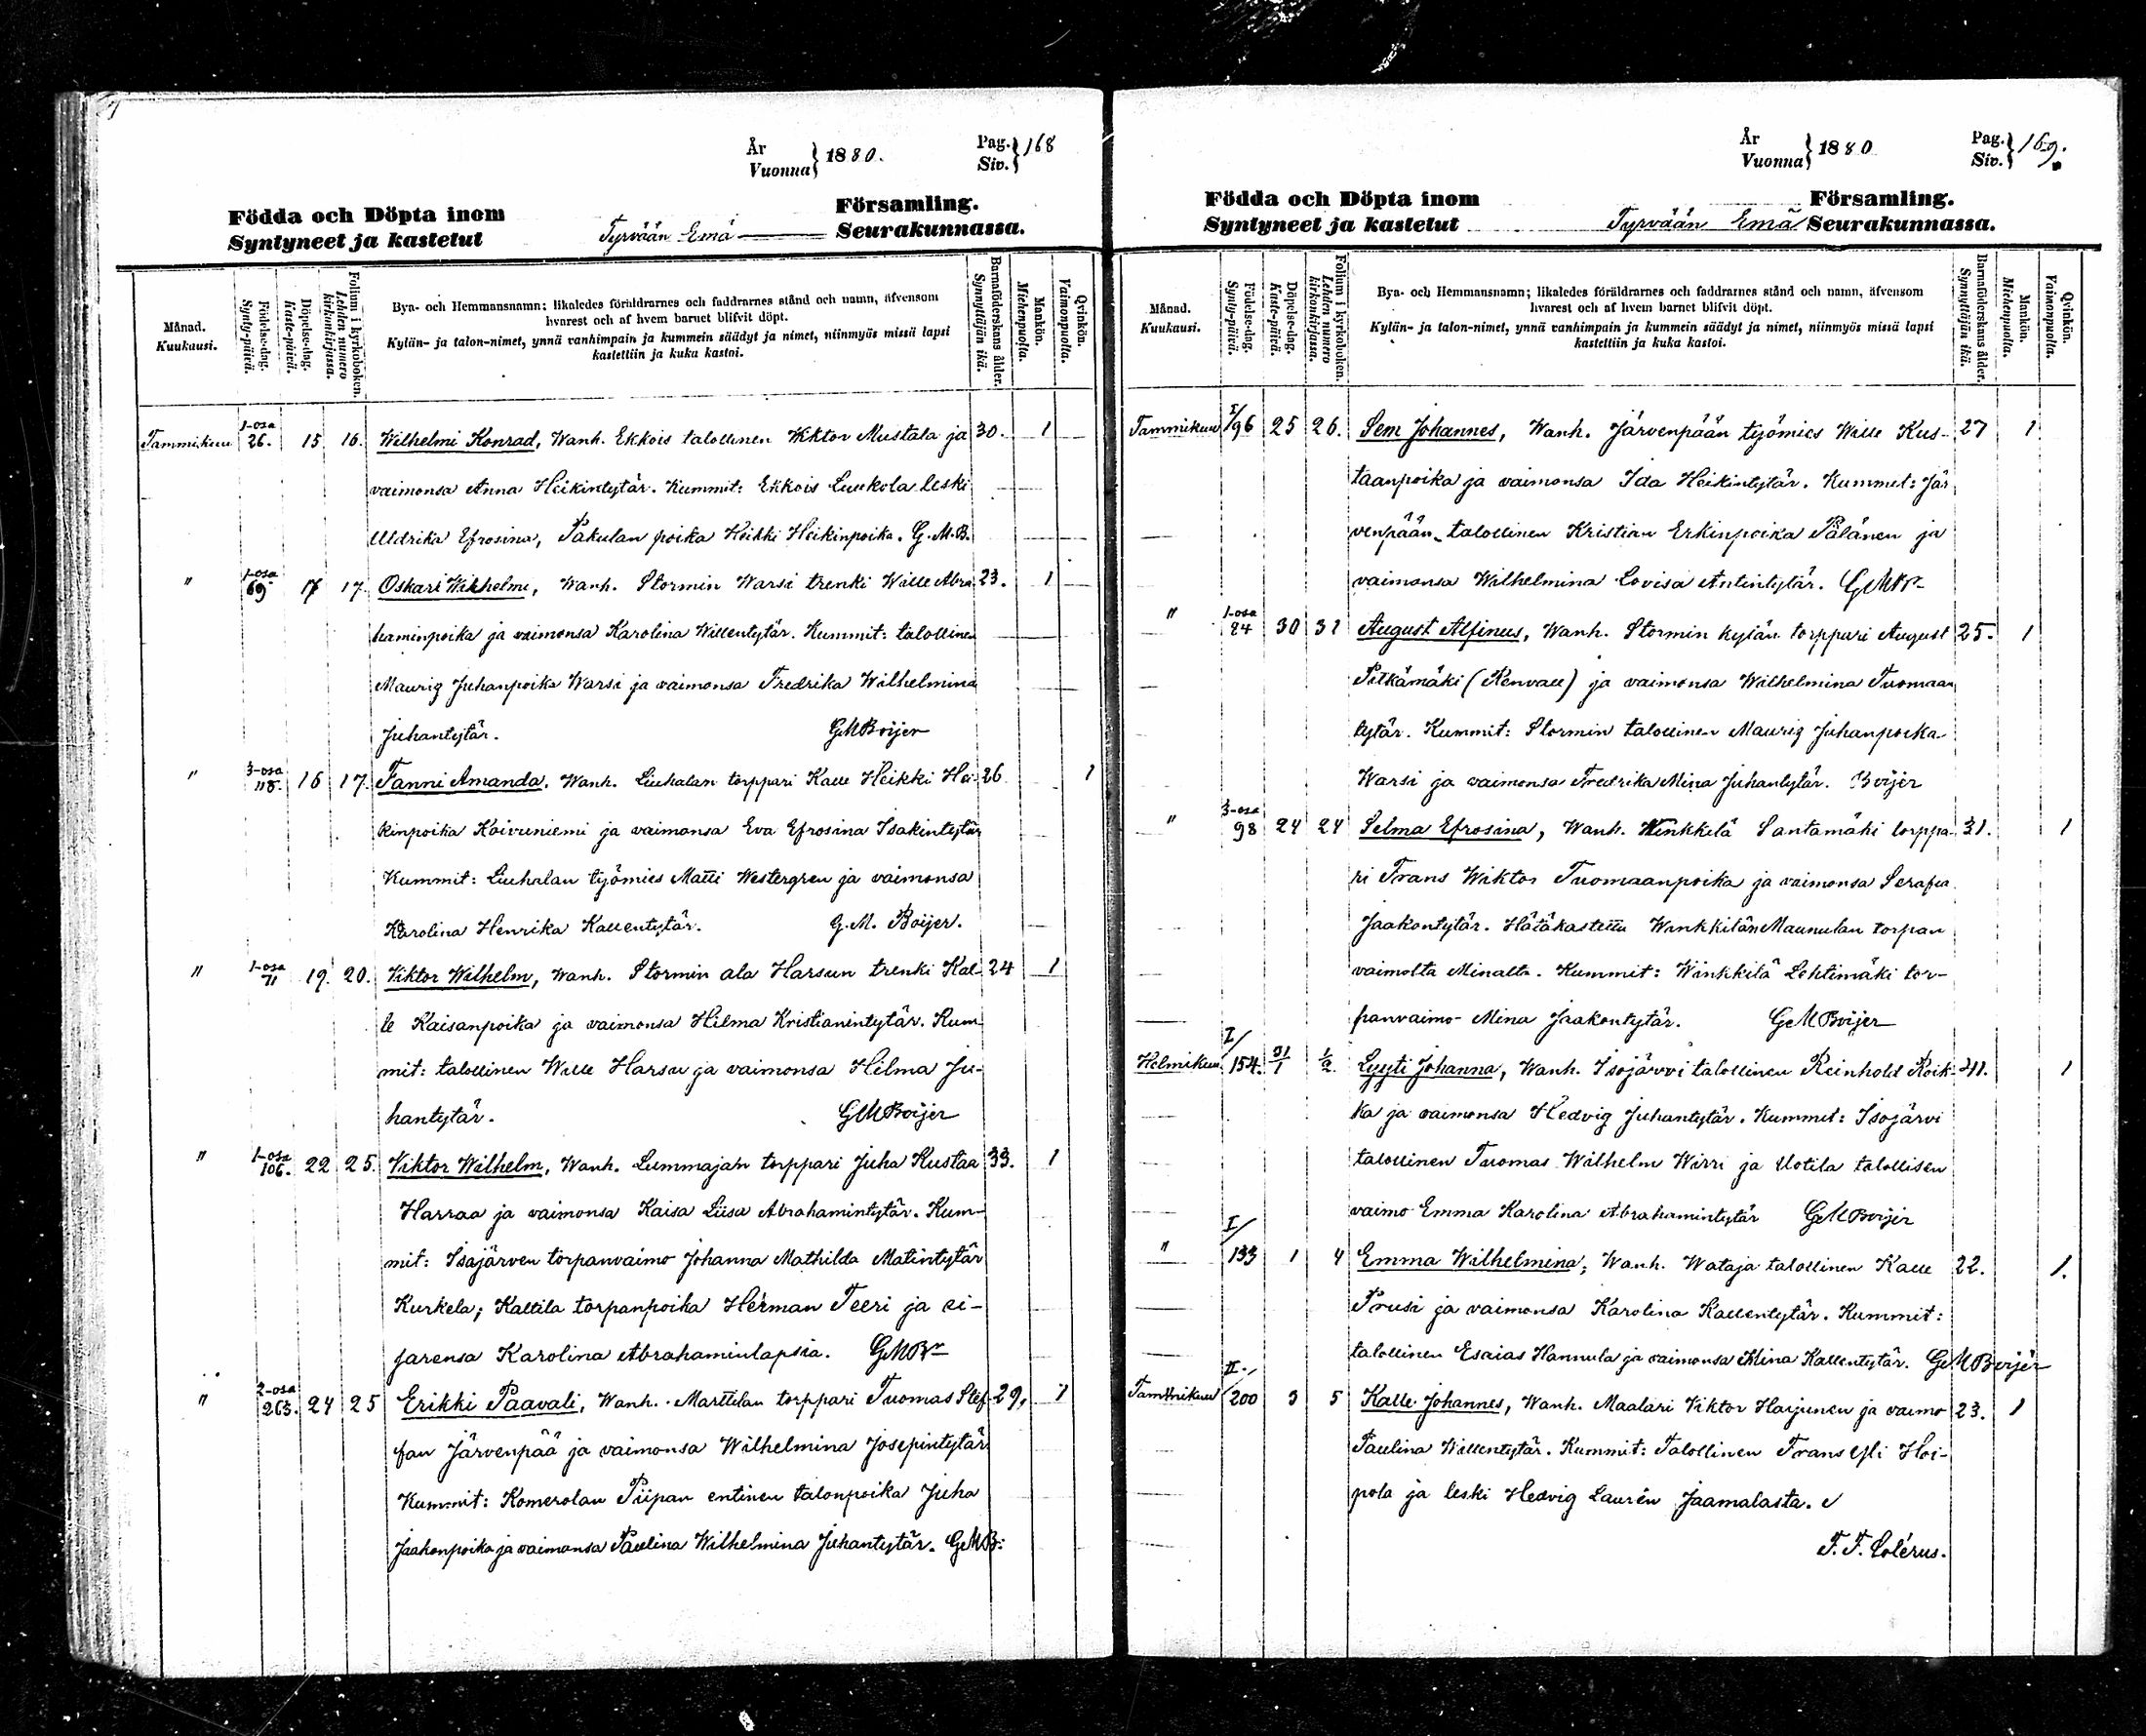 År
Vuonna } 1880.
Pag.
Siv. } 168
Födda och Döpta inom Församling.
Syntyneet ja kastetut Tyrvään Emä Seurakunnassa.
Månad.
Kuukausi.
Födelse-dag.
Synty-päivä.
Döpelse-dag.
Kaste-päivä.
Folium i kyrkoboken.
Lehden numero kirkonkirjassa.
Bya- och Hemmansnamn; likaledes föräldrarnes och faddrarnes stånd och namn, äfvensom
hvarest och af hvem barnet blifvit döpt.
Kylän- ja talon-nimet, ynnä vanhimpain ja kummein säädyt ja nimet, niinmyös missä lapsi
kastettiin ja kuka kastoi.
Barnaföderskans ålder.
Synnyttäjän ikä.
Mankön.
Miehenpuolta.
Qvinkön.
Vaimonpuolta.
Tammikuu 1-osa 26. 15 16. Wilhelmi Konrad, Wanh. Ekkois talollinen Wiktor Mustala ja 30. 1
vaimonsa Anna Heikintytär. Kummit: Ekkois Luukola leski
Uldrika Efrosina, Pakulan poika Heikki Heikinpoika. G.M.B.
" 1-osa 69 17 17. Oskari Wilhelmi, Wanh. Stormin Warsi trenki Wille Abra 23. 1
haminpoika ja vaimonsa Karolina Willentytär. Kummit: talollinen
Mauriz Juhanpoika Warsi ja vaimonsa Fredrika Wilhelmina
Juhantytär. GMBoijer
" 3-osa 118. 16 17. Fanni Amanda. Wanh. Liuhalan torppari Kalle Heikki Hei- 26 1
kinpoika Koivuniemi ja vaimonsa Eva Efrosina Isakintytär
Kummit: Liuhalan työmies Matti Westergren ja vaimonsa
Karolina Henrika Kallentytär. G.M. Boijer.
" 1-osa 71 19. 20. Viktor Wilhelm, Wanh. Stormin ala Harsun trenki Kal- 24 1
le Kaisanpoika ja vaimonsa Hilma Kristianintytär. Kum
mit: talollinen Wille Harsu ja vaimonsa Hilma Ju-
hantytär. GMBoijer
" 1-osa 106. 22 25. Viktor Wilhelm, Wanh. Lummajan torppari Juha Kustaa 33. 1
Harraa ja vaimonsa Kaisa Liisa Abrahamintytär. Kum-
mit: Isajärven torpanvaimo Johanna Mathilda Matintytär
Kurkela; Kaltila torpanpoika Herman Teeri ja si-
sarensa Karolina Abrahaminlapsia. GMBr
" 2-osa 263. 24 25 Erikki Paavali, Wanh. Marttilan torppari Tuomas Stef- 29, 1
fan Järvenpää ja vaimonsa Wilhelmina Josepintytär
Kummit: Komerolan Piipan entinen talonpoika Juha
Jaakonpoika ja vaimonsa Paulina Wilhelmina Juhantytär. GMB:
År
Vuonna } 1880
Pag.
Siv. } 169.
Födda och Döpta inom Församling.
Syntyneet ja kastetut Tyrvään Emä Seurakunnassa.
Månad.
Kuukausi.
Födelse-dag.
Synty-päivä.
Döpelse-dag.
Kaste-päivä.
Folium i kyrkoboken.
Lehden numero kirkonkirjassa.
Bya- och Hemmansnamn; likaledes föräldrarnes och faddrarnes stånd och namn, äfvensom
hvarest och af hvem barnet blifvit döpt.
Kylän- ja talon-nimet, ynnä vanhimpain ja kummein säädyt ja nimet, niinmyös missä lapsi
kastettiin ja kuka kastoi.
Barnaföderskans ålder.
Synnyttäjän ikä.
Mankön.
Miehenpuolta.
Qvinkön.
Vaimonpuolta.
Tammikuu I/196 25 26. Sem Johannes, Wanh. Järvenpään työmies Wille Kus- 27 1
taanpoika ja vaimonsa Ida Heikintytär. Kummit: Jär
venpään talollinen Kristian Erkinpoika Pälänen ja
vaimonsa Wilhelmina Lovisa Antintytär. GMBr
" 1-osa 84 30 31 August Alfinus, Wanh. Stormin kylän torppari August 25. 1
Pitkämäki (Renvall) ja vaimonsa Wilhelmina Tuomaan
tytär. Kummit: Stormin talollinen Mauriz Juhanpoika
Warsi ja vaimonsa Fredrika Mina Juhantytär. Boijer
" 3-osa 98 24 24 Selma Efrosina, Wanh. Winkkilä Santamäki torppa- 31. 1
ri Frans Wiktor Tuomaanpoika ja vaimonsa Serafia
Jaakontytär. Hätäkastettu Winkkilän Maunulan torpan
vaimolta Minalta. Kummit: Winkkilä Lehtimäki tor-
panvaimo Mina Jaakontytär. GMBoijer
Helmikuu I/154. 31/1 1/2. Lyyti Johanna, Wanh. Isojärvi talollinen Reinhold Roik- 41. 1
ka ja vaimonsa Hedvig Juhantytär. Kummit: Isojärvi
talollinen Tuomas Wilhelm Wirri ja Uotila talollisen
vaimo Emma Karolina Abrahamintytär GMBoijer
" I/133 1 4 Emma Wilhelmina, Wanh. Wataja talollinen Kalle 22. 1.
Prusi ja vaimonsa Karolina Kallentytär. Kummit:
talollinen Esaias Hannula ja vaimonsa Mina Kallentytär. GMBoijer
Tammikuu II./200 3 5 Kalle Johannes, Wanh. Maalari Viktor Haijunen ja vaimo 23. 1
Paulina Willentytär. Kummit: Talollinen Frans Yli Hoi-
pola ja leski Hedvig Laurén Jaamalasta.
F. F. Lolérus.